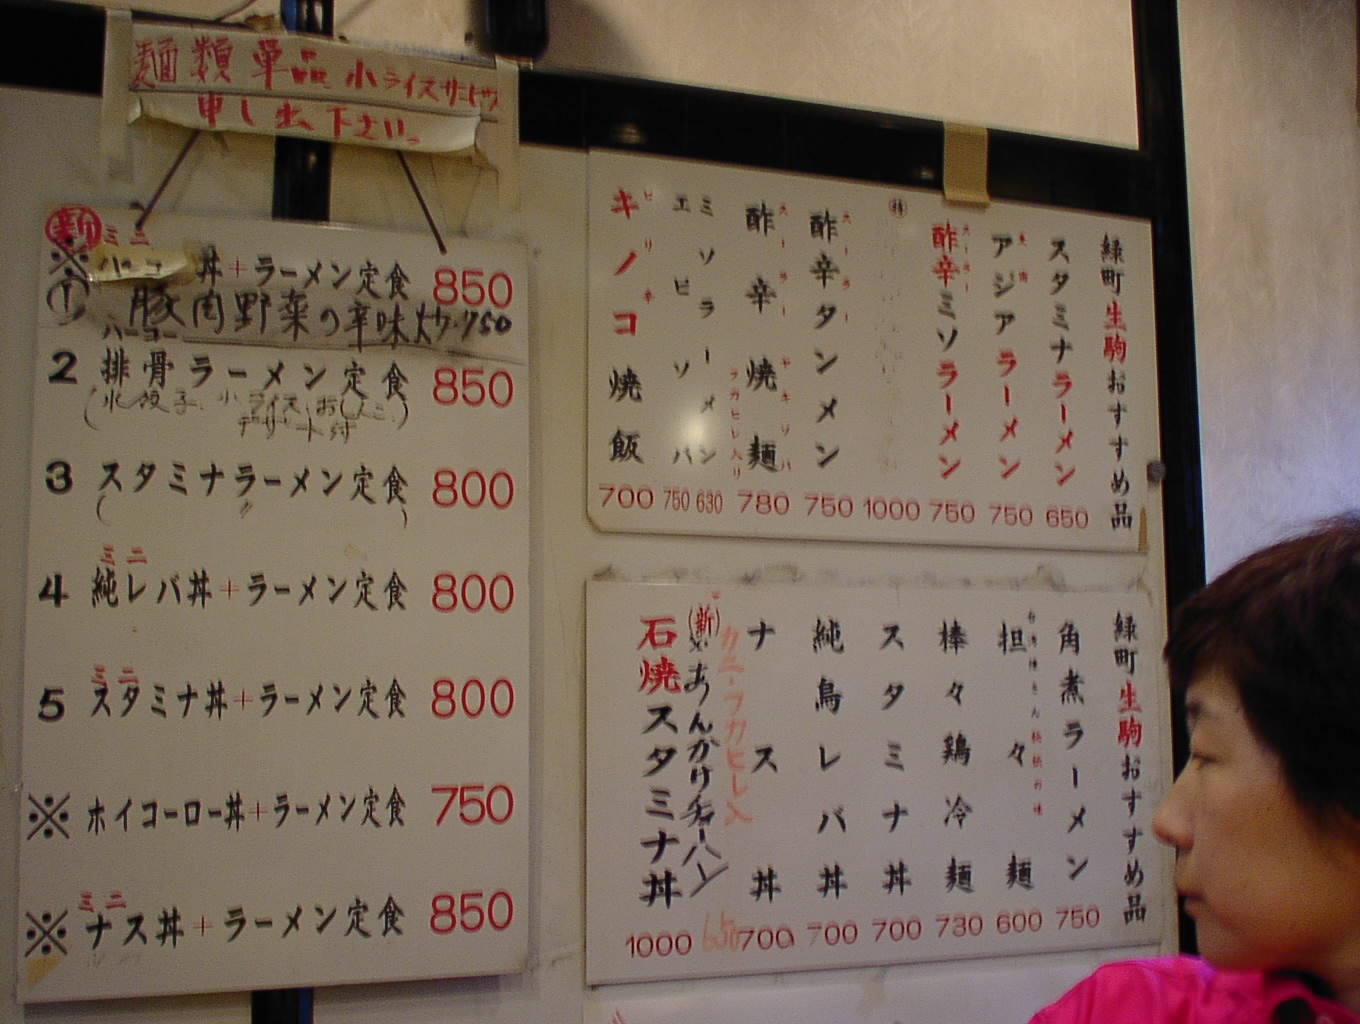 麺類単品小ライスサービス
申し出下さい。
新
※ ミニ 丼+ラーメン定食 850
① 豚肉野菜の辛味炒 750
パーコー
2 排骨ラーメン定食 850
(水餃子、小ライス、おしんこ)
デザート付
3 スタミナラーメン定食 800
( 〃 )
ミニ
4 純レバ丼+ラーメン定食 800
ミニ
5 スタミナ丼+ラーメン定食 800
※ ホイコーロー丼+ラーメン定食 750
ミニ
※ ナス丼+ラーメン定食 850
緑町生駒おすすめ品
スタミナラーメン 650
アジアラーメン 750
酢辛ミソラーメン 750
特 1000
酢辛タンメン 750
酢辛焼麺 フカヒレ入り 780
ミソラーメン 630
エビソバ 750
キノコ焼飯 700
緑町生駒おすすめ品
角煮ラーメン 750
担々麺 600
棒々鶏冷麺 730
スタミナ丼 700
純鳥レバ丼 700
ナス丼 700
カニ・フカヒレ入
(新)あんかけチャーハン 650
石焼スタミナ丼 1000